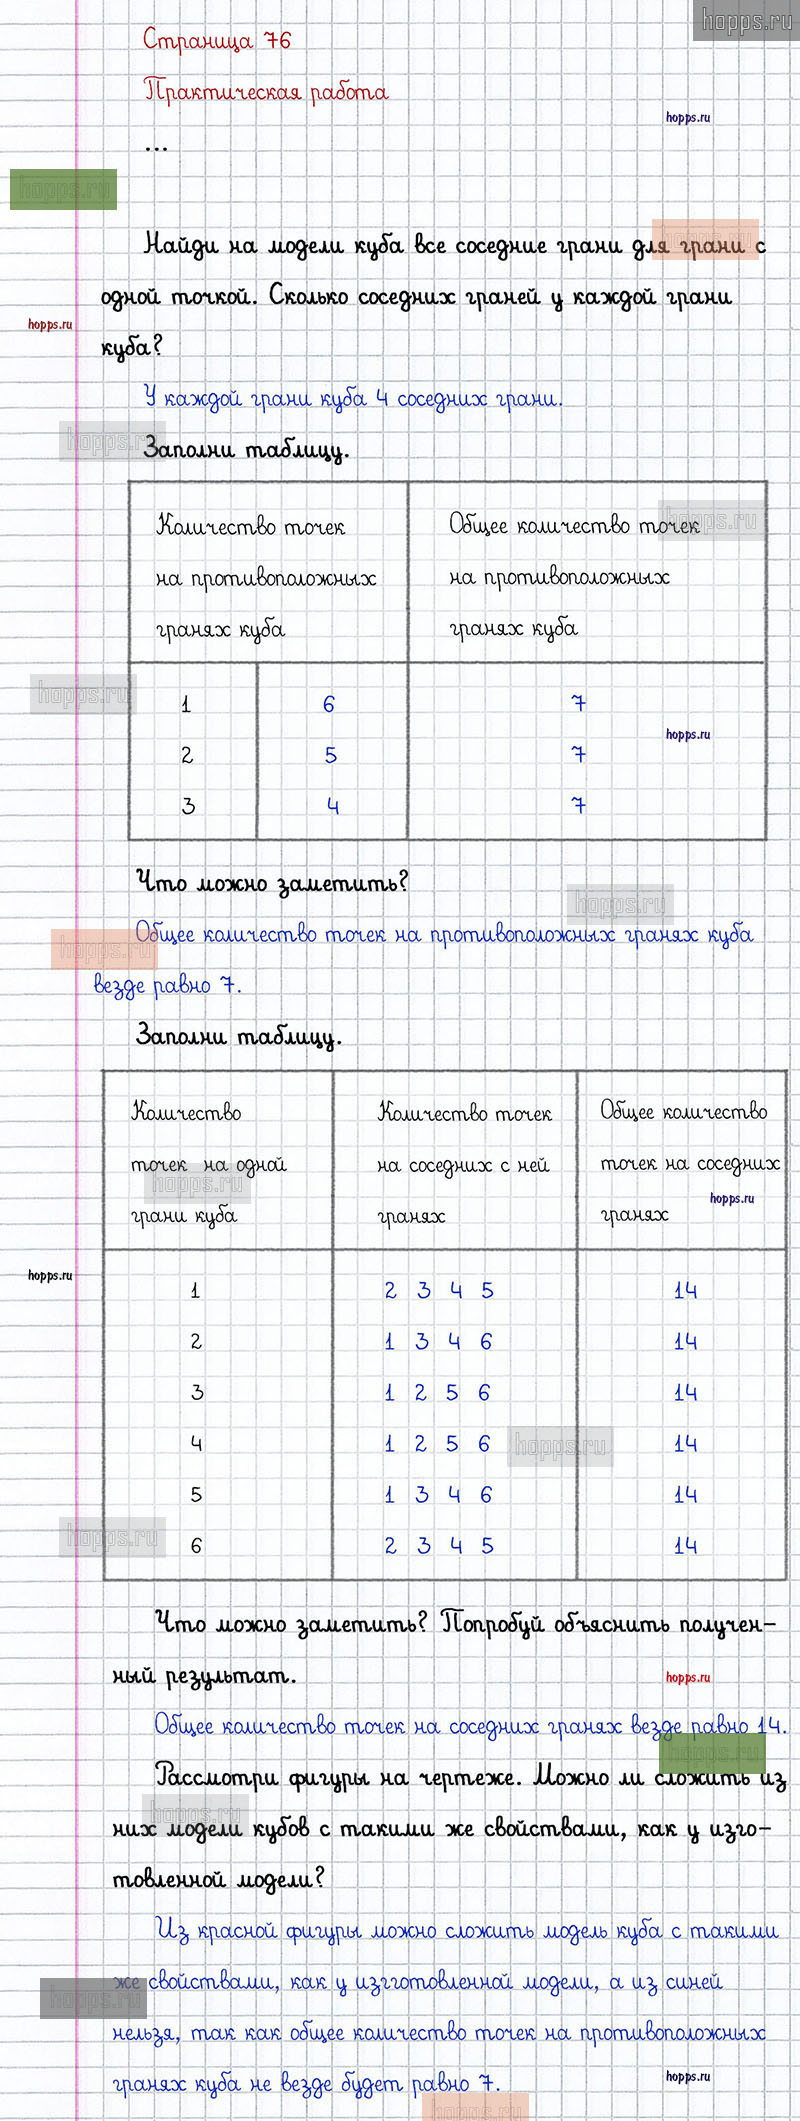 hopps.ru
Страница 76
Практическая работа
hopps.ru
...
hopps.ru
hopps.ru
Найди на модели куба все соседние грани для грани с
одной точкой. Сколько соседних граней у каждой грани
hopps.ru
куба?
У каждой грани куба 4 соседних грани.
hopps.ru
Заполни таблицу.
Количество точек
на противоположных
гранях куба
Общее количество точек
на противоположных
гранях куба
hopps.ru
hopps.ru
1 6 7
hopps.ru
2 5 7
3 4 7
Что можно заметить?
hopps.ru
hopps.ru
Общее количество точек на противоположных гранях куба
везде равно 7.
Заполни таблицу.
Количество
точек на одной
грани куба
Количество точек
на соседних с ней
гранях
Общее количество
точек на соседних
гранях
hopps.ru
hopps.ru
hopps.ru
1 2 3 4 5 14
2 1 3 4 6 14
3 1 2 5 6 14
4 1 2 5 6 14
hopps.ru
5 1 3 4 6 14
6 2 3 4 5 14
hopps.ru
Что можно заметить? Попробуй объяснить получен-
ный результат.
hopps.ru
Общее количество точек на соседних гранях везде равно 14.
hopps.ru
Рассмотри фигуры на чертеже. Можно ли сложить из
hopps.ru
них модели кубов с такими же свойствами, как у изго-
товленной модели?
Из красной фигуры можно сложить модель куба с такими
же свойствами, как у изгготовленной модели, а из синей
hopps.ru
нельзя, так как общее количество точек на противоположных
гранях куба не везде будет равно 7.
hopps.ru
hopps.ru